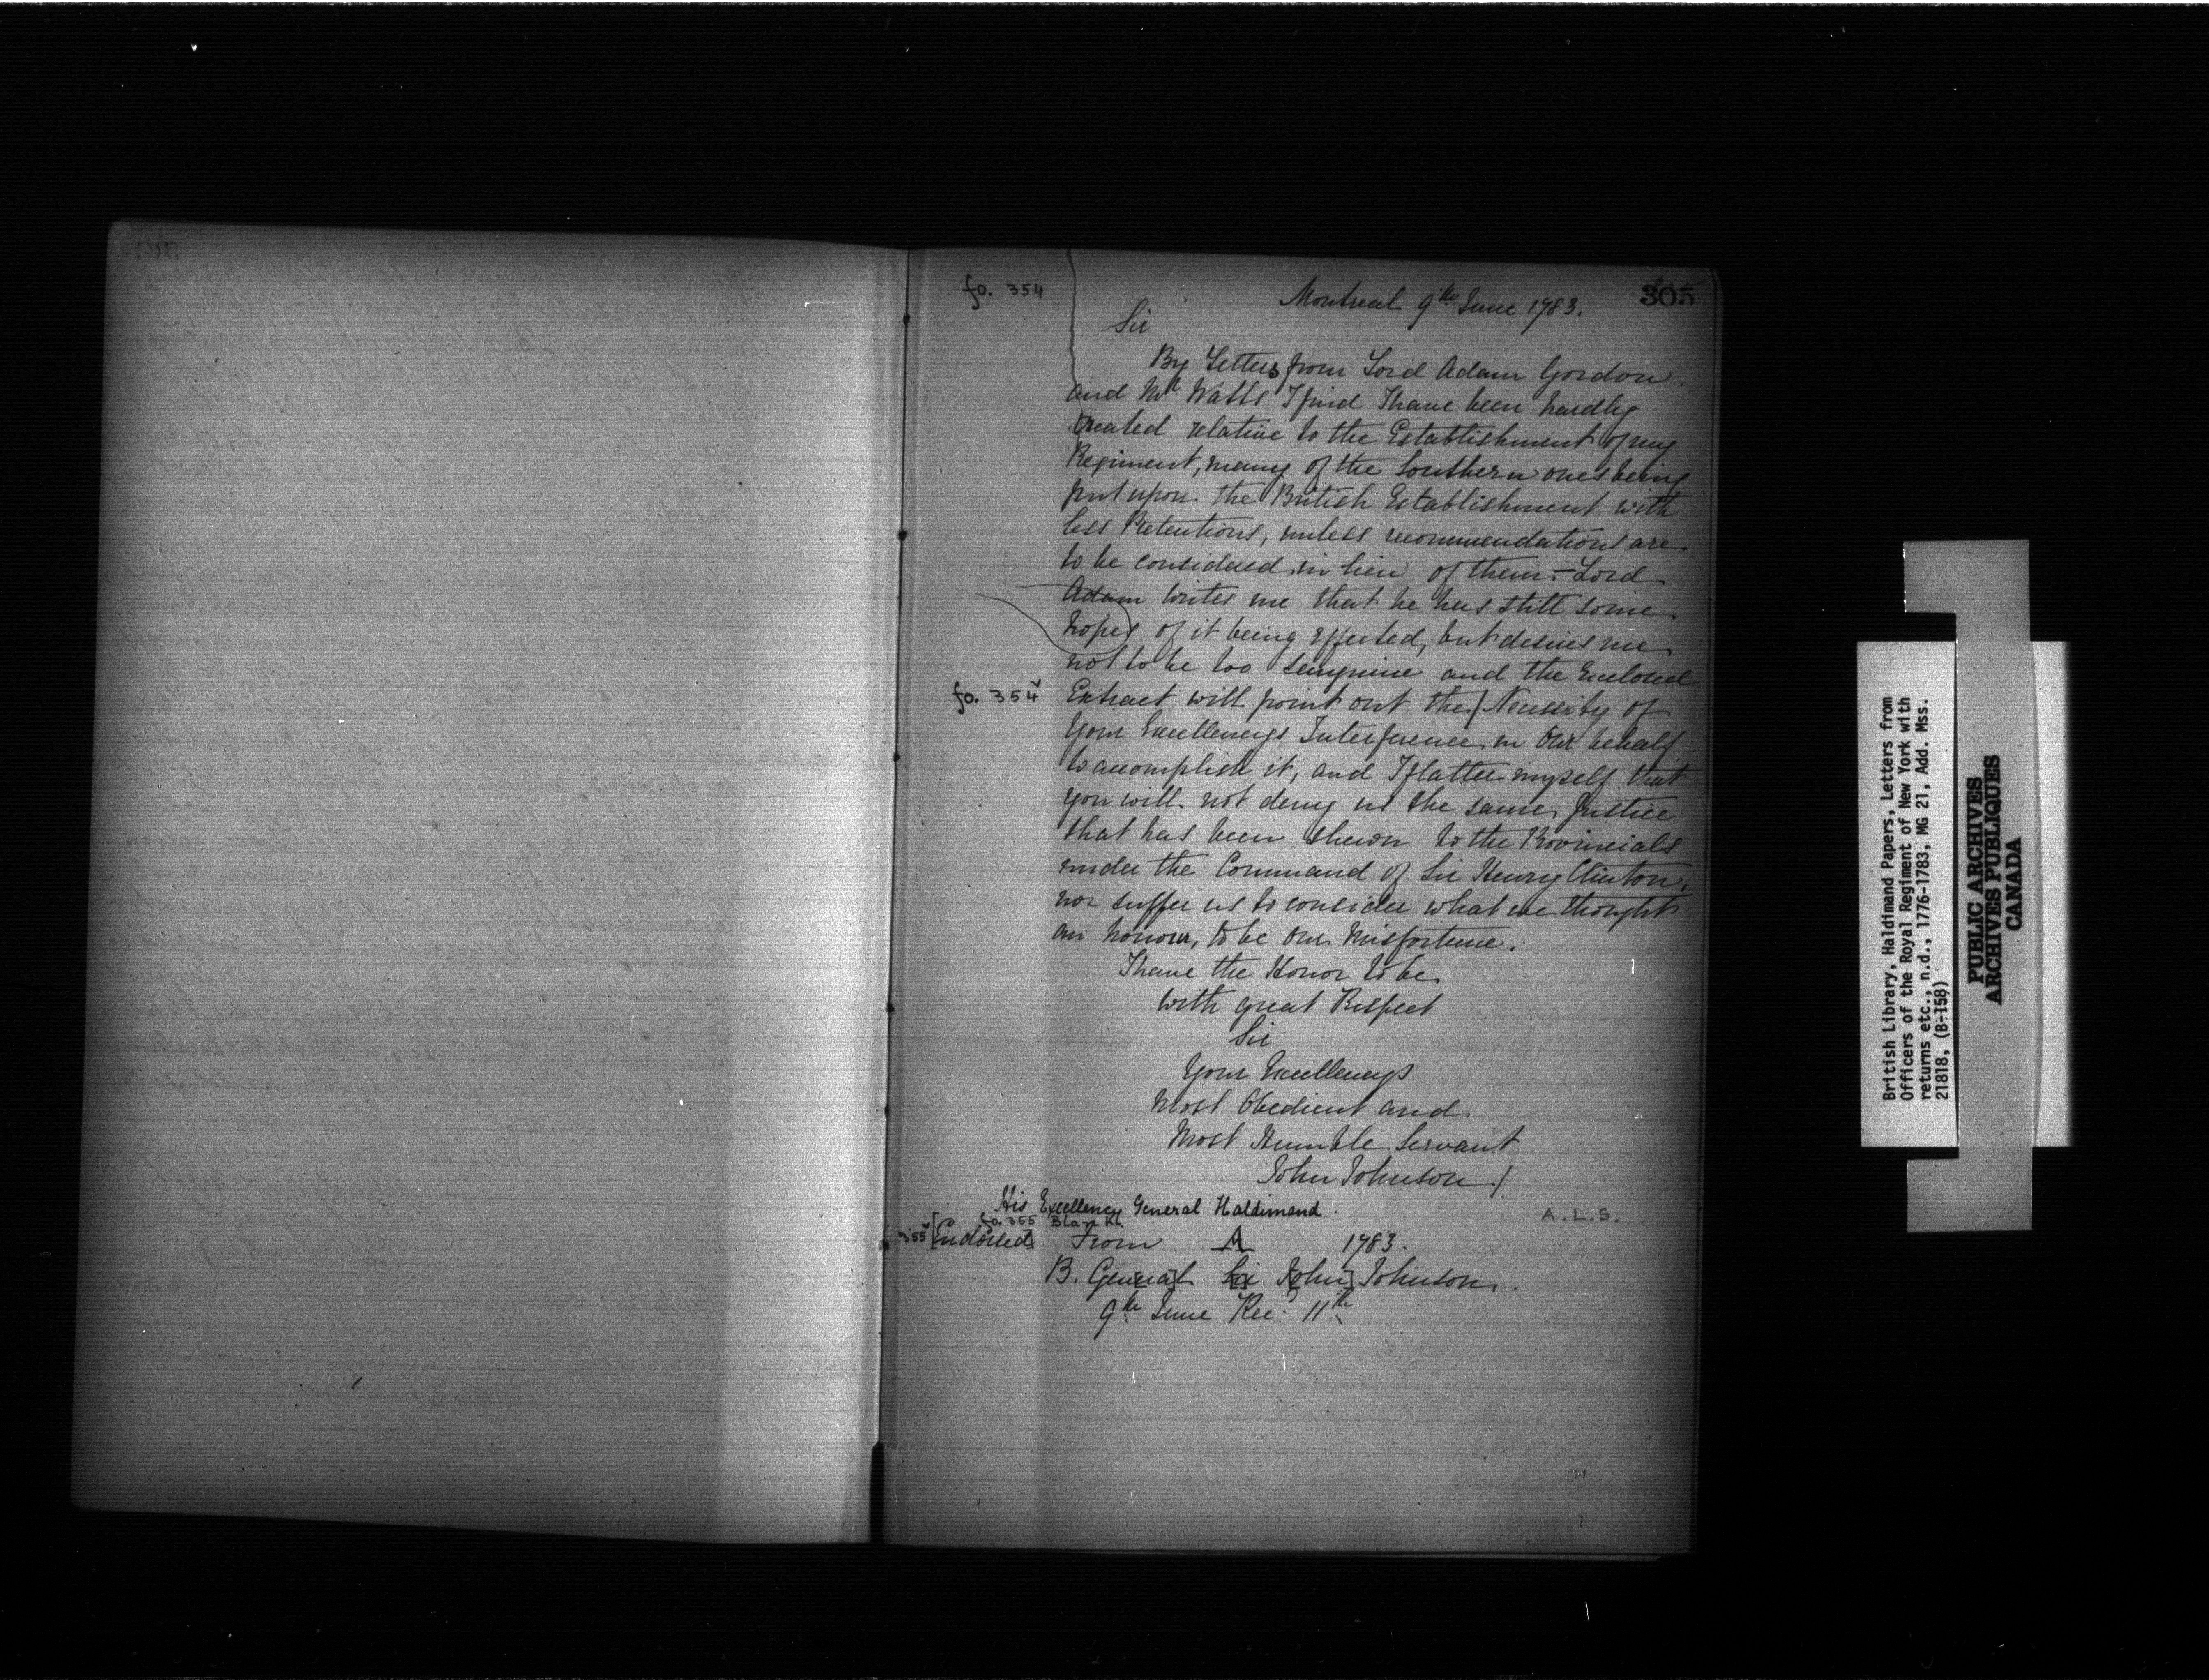 305
fo. 354
Montreal 9th June 1783.
Sir
By Letters from Lord Adam Gordon
and Mr Watts I find I have been hardly
treated relative to the Establishment of my
Regiment, many of the Southern ones being
put upon the British Establishment with
less Pretentions, unless recommendations are
to be considered in lieu of them - Lord
Adam writes me that he has still some
hopes of it being effected, but desires me
not to be too sanguine and the Enclosed
fo. 354v
Extract will point out the / Necessity of
Your Excellencys Interference in Our behalf
to accomplish it, and I flatter myself that
you will not deny us the same Justice
that has been shewn to the Provincials
under the Command of Sir Henry Clinton,
nor suffer us to consider what we thought
an honour, to be our misfortune.
I have the Honor to be
with great Respect
Sir
Your Excellencys
Most Obedient and
Most Humble Servant
John Johnson /
His Excellency General Haldimand.
A.L.S.
fo. 355 Blank.
355v [Endorsed] From A 1783.
B. Gen[era]l S[ir] J[ohn] Johnson.
9th June Rec'd 11th
British Library, Haldimand Papers, Letters from
Officers of the Royal Regiment of New York with
returns etc., n.d., 1776-1783, MG 21, Add. Mss.
21818, (B-158)
PUBLIC ARCHIVES
ARCHIVES PUBLIQUES
CANADA